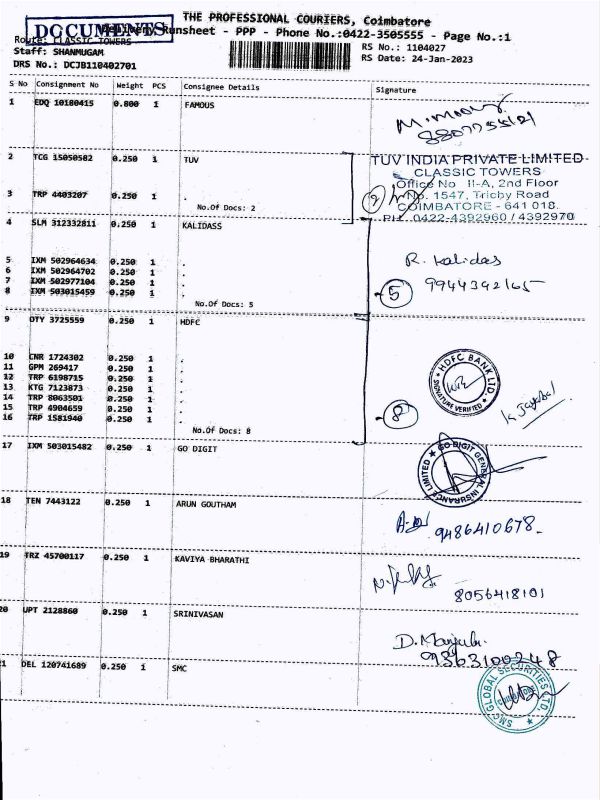 THE PROFESSIONAL COURIERS, Coimbatore
DOCUMENTS
Delivery Runsheet - PPP - Phone No.:0422-3505555 - Page No.:1
Route: CLASSIC TOWERS
Staff: SHANMUGAM
DRS No.: DCJB110402701
RS No.: 1104027
RS Date: 24-Jan-2023
S No Consignment No Weight PCS Consignee Details Signature
1 EDQ 10180415 0.800 1 FAMOUS
8807755121
2 TCG 15050582 0.250 1 TUV
TUV INDIA PRIVATE LIMITED
CLASSIC TOWERS
Office No II-A, 2nd Floor
No. 1547, Tricby Road
COIMBATORE - 641 018.
PH 0422-4392960 / 4392970
3 TRP 4403207 0.250 1 .
No.Of Docs: 2
2
4 SLM 312332811 0.250 1 KALIDASS
R. Kalidas
9944392165
5 IXM 502964634 0.250 1 .
6 IXM 502964702 0.250 1 .
7 IXM 502977104 0.250 1 .
8 IXM 503015459 0.250 1 .
No.Of Docs: 5
5
9 OTY 3725559 0.250 1 HDFC
10 CNR 1724302 0.250 1 .
11 GPM 269417 0.250 1 .
12 TRP 6198715 0.250 1 .
13 KTG 7123873 0.250 1 .
14 TRP 8063501 0.250 1 .
15 TRP 4904659 0.250 1 .
16 TRP 1581940 0.250 1 .
No.Of Docs: 8
8
HDFC BANK LTD
SIGNATURE VERIFIED
17 IXM 503015482 0.250 1 GO DIGIT
GO DIGIT GENERAL INSURANCE LIMITED
18 TEN 7443122 0.250 1 ARUN GOUTHAM
9486410678
19 TRZ 45700117 0.250 1 KAVIYA BHARATHI
8056418101
20 UPT 2128860 0.250 1 SRINIVASAN
D. Manjula
09363100248
21 DEL 120741689 0.250 1 SMC
SMC GLOBAL SECURITIES LTD.